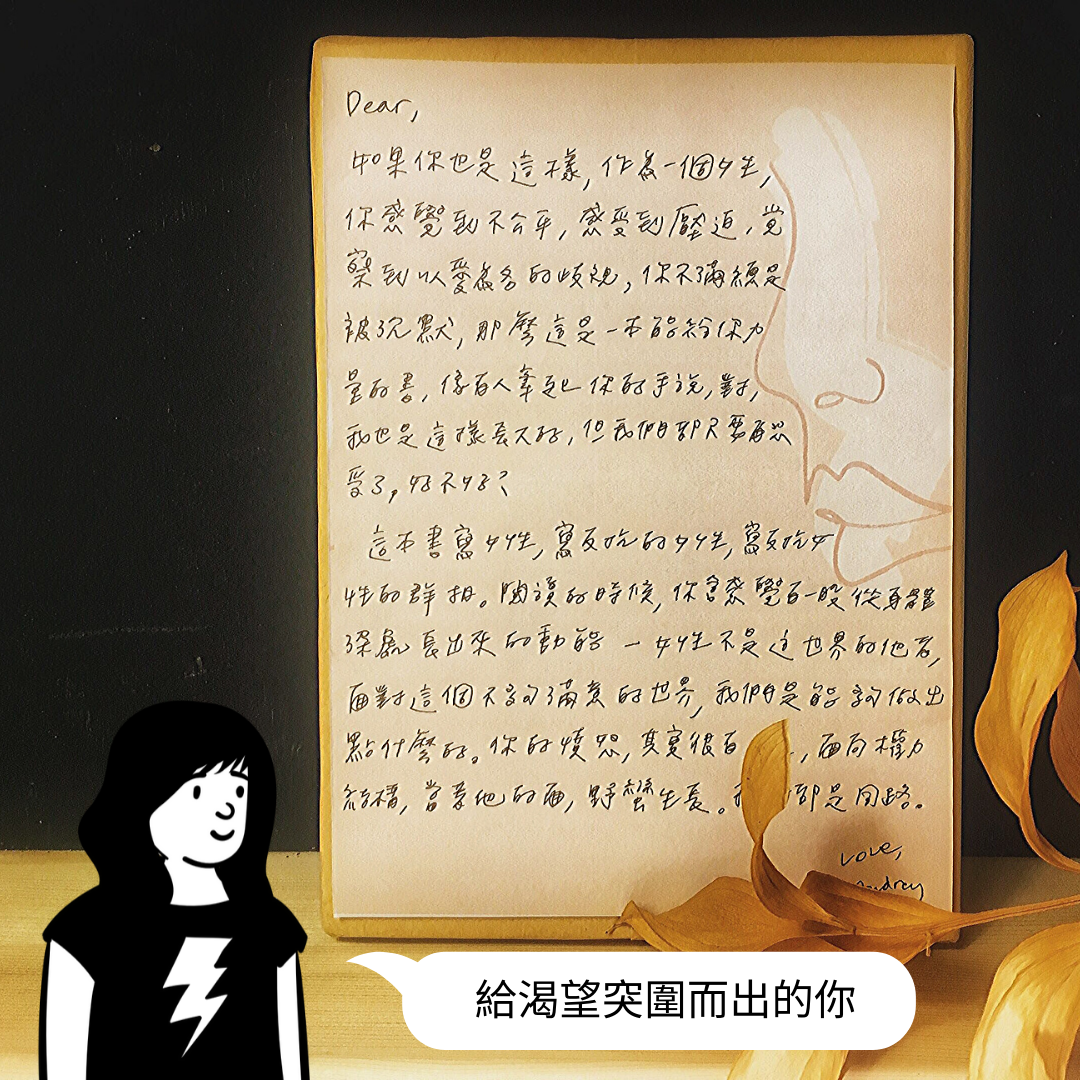 Dear,
如果你也是這樣,作為一個女生,
你感覺到不公平,感受到壓迫,覺
察到以愛為名的歧視,你不滿總是
被沉默,那麼這是一本能給你力
量的書,像有人牽起你的手說,對,
我也是這樣長大的,但我們都不要再忍
受了,好不好?
這本書寫女性,寫反抗的女性,寫反抗女
性的群相。閱讀的時候,你會感覺有一股從身體
深處長出來的動能—女性不是這世界的他者,
面對這個不夠滿意的世界,我們是能夠做出
點什麼的。你的憤怒,其實很有,面向權力
結構,當著他的面,野蠻生長。都是同路。
Love,
Audrey
給渴望突圍而出的你